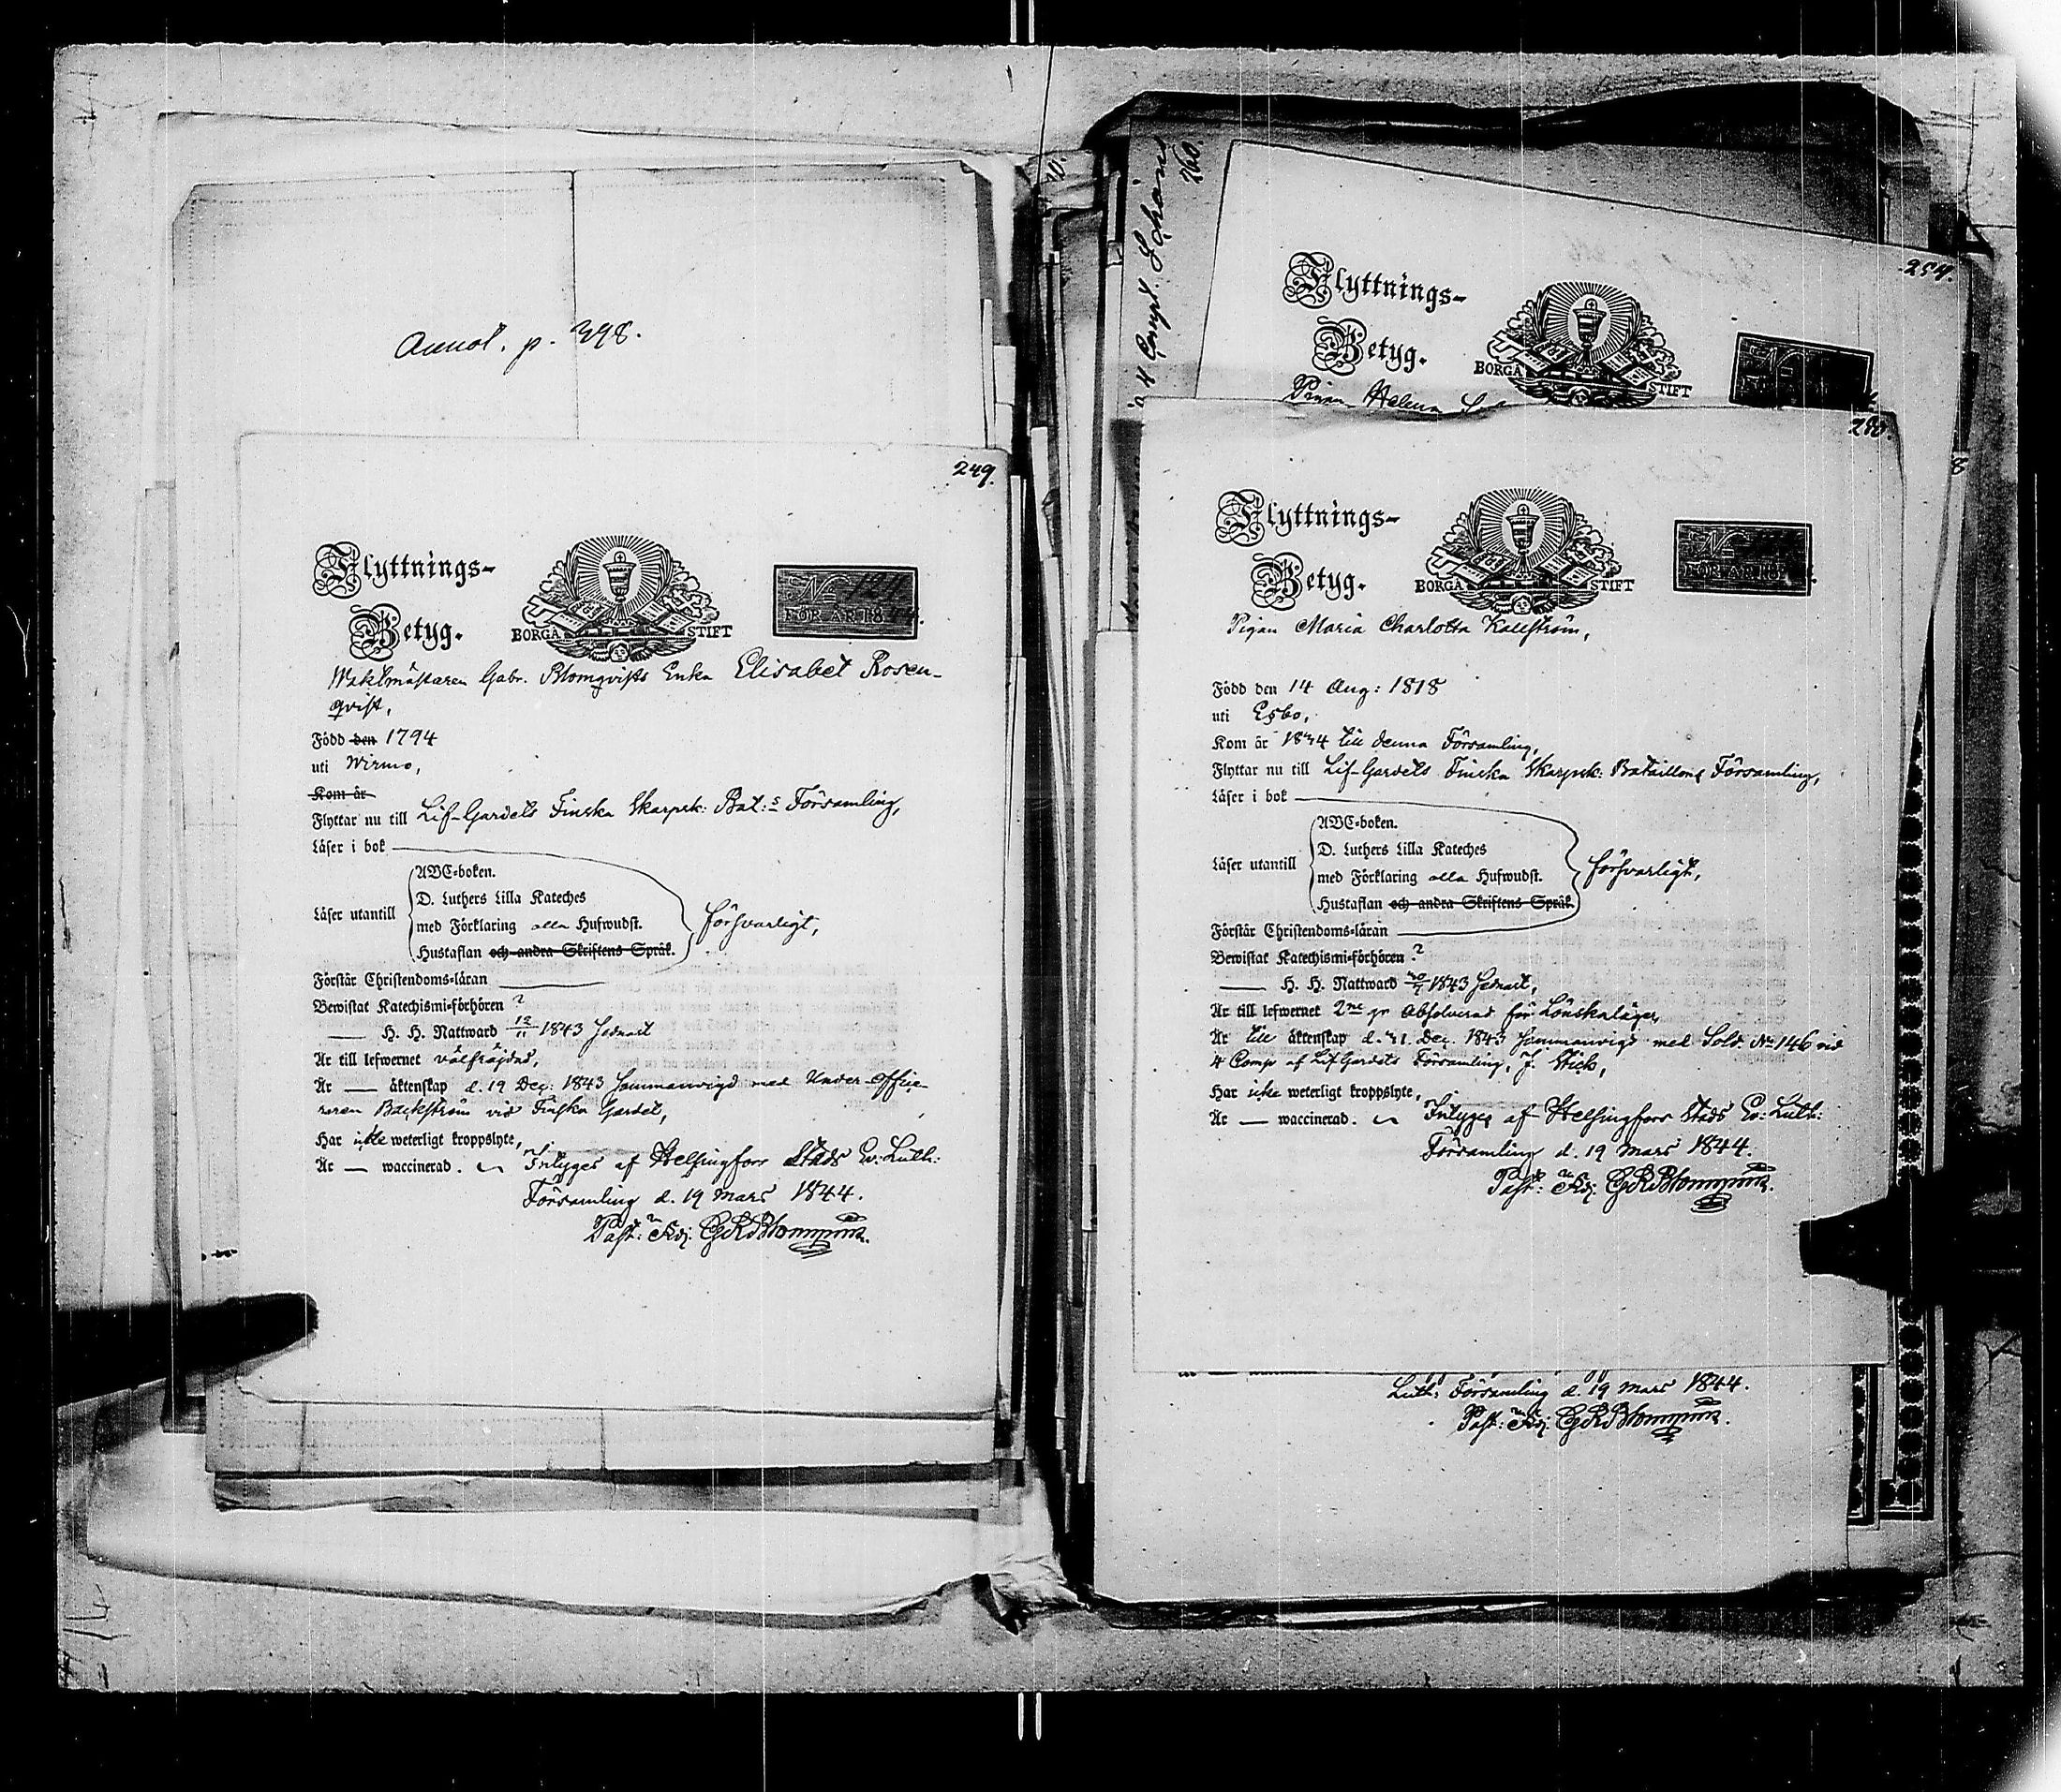 Annot. p. 398.
249.
Flyttnings-
Betyg.
BORGÅ STIFT
No 121
FÖR ÅR 1844.
Waktmästaren Gabr. Blomqvists Enka Elisabet Rosen-
qvist,
Född den 1794
uti Wirmo,
Kom år
Flyttar nu till Lif-Gardets Finska Skarpsk: Bat:s Församling,
Läser i bok
Läser utantill
ABC-boken.
D. Luthers Lilla Kateches
med Förklaring alla Hufwudst.
Hustaflan och andra Skriftens Språk.
försvarligt,
Förstår Christendoms-läran
Bewistat Katechismi-förhören ?
H. H. Nattward 19/11 1843 sednast
Är till lefwernet välfräjdad,
Är — äktenskap d. 19 Dec: 1843 sammanvigd med Under-Offic-
reren Backström vid Finska Gardet,
Har icke weterligt kroppslyte,
Är — waccinerad. Intygas af Helsingfors Stads Ev: Luth:
Församling d. 19 Mars 1844.
Past: Adj:
260.
4 Comp.
254.
Flyttnings-
Betyg.
BORGÅ STIFT
Pigan Helena
Flyttnings-
Betyg.
BORGÅ STIFT
No
FÖR ÅR 18
Pigan Maria Charlotta Kallström,
Född den 14 Aug: 1818
uti Esbo,
Kom år 1834 till denna Församling,
Flyttar nu till Lif-Gardets Finska Skarpsk: Bataillons Församling,
Läser i bok
Läser utantill
ABC-boken.
D. Luthers Lilla Kateches
med Förklaring alla Hufwudst.
Hustaflan och andra Skriftens Språk.
försvarligt,
Förstår Christendoms-läran
Bewistat Katechismi-förhören ?
H. H. Nattward 1843 sednast,
Är till lefwernet 2ne gr absolverad för Lönskaläger,
Är till äktenskap d. 31. Dec. 1843 sammanvigd med Sold. No 146 vid
4 Comp af LifGardets Församling, J. Stick,
Har icke weterligt kroppslyte,
Är — waccinerad. Intygas af Helsingfors Stads Ev: Luth:
Församling d. 19 Mars 1844.
Past: Adj:
Luth: Församling d. 19 Mars 1844.
Past: Adj: